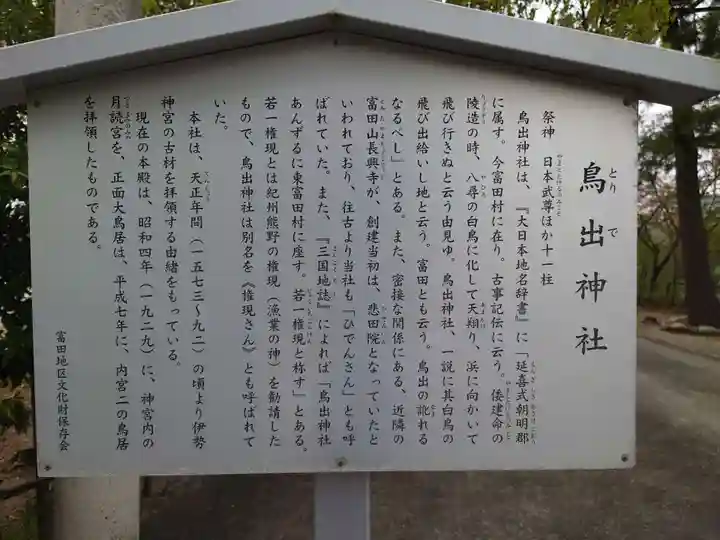 鳥出神社
とりで
祭神 日本武尊ほか十一柱
鳥出神社は、『大日本地名辞書』に「延喜式朝明郡
に属す。今富田村に在り。古事記伝に云う。倭建命の
陵造の時、八尋の白鳥に化して天翔り、浜に向かいて
飛び行きぬと云う由見ゆ。鳥出神社、一説に其白鳥の
飛び出給いし地と云う。富田とも云う。鳥出の訛れる
なるべし」とある。また、密接な関係にある、近隣の
富田山長興寺が、創建当初は、悲田院となっていたと
いわれており、往古より当社も「ひでんさん」とも呼
ばれていた。また、『三国地誌』によれば「鳥出神社
あんずるに東富田村に座す。若一権現と称す」とある。
若一権現とは紀州熊野の権現(漁業の神)を勧請した
もので、鳥出神社は別名を《権現さん》とも呼ばれて
いた。
本社は、天正年間(一五七三~九二)の頃より伊勢
神宮の古材を拝領する由緒をもっている。
現在の本殿は、昭和四年(一九二九)に、神宮内の
月読宮を、正面大鳥居は、平成七年に、内宮二の鳥居
を拝領したものである。
富田地区文化財保存会